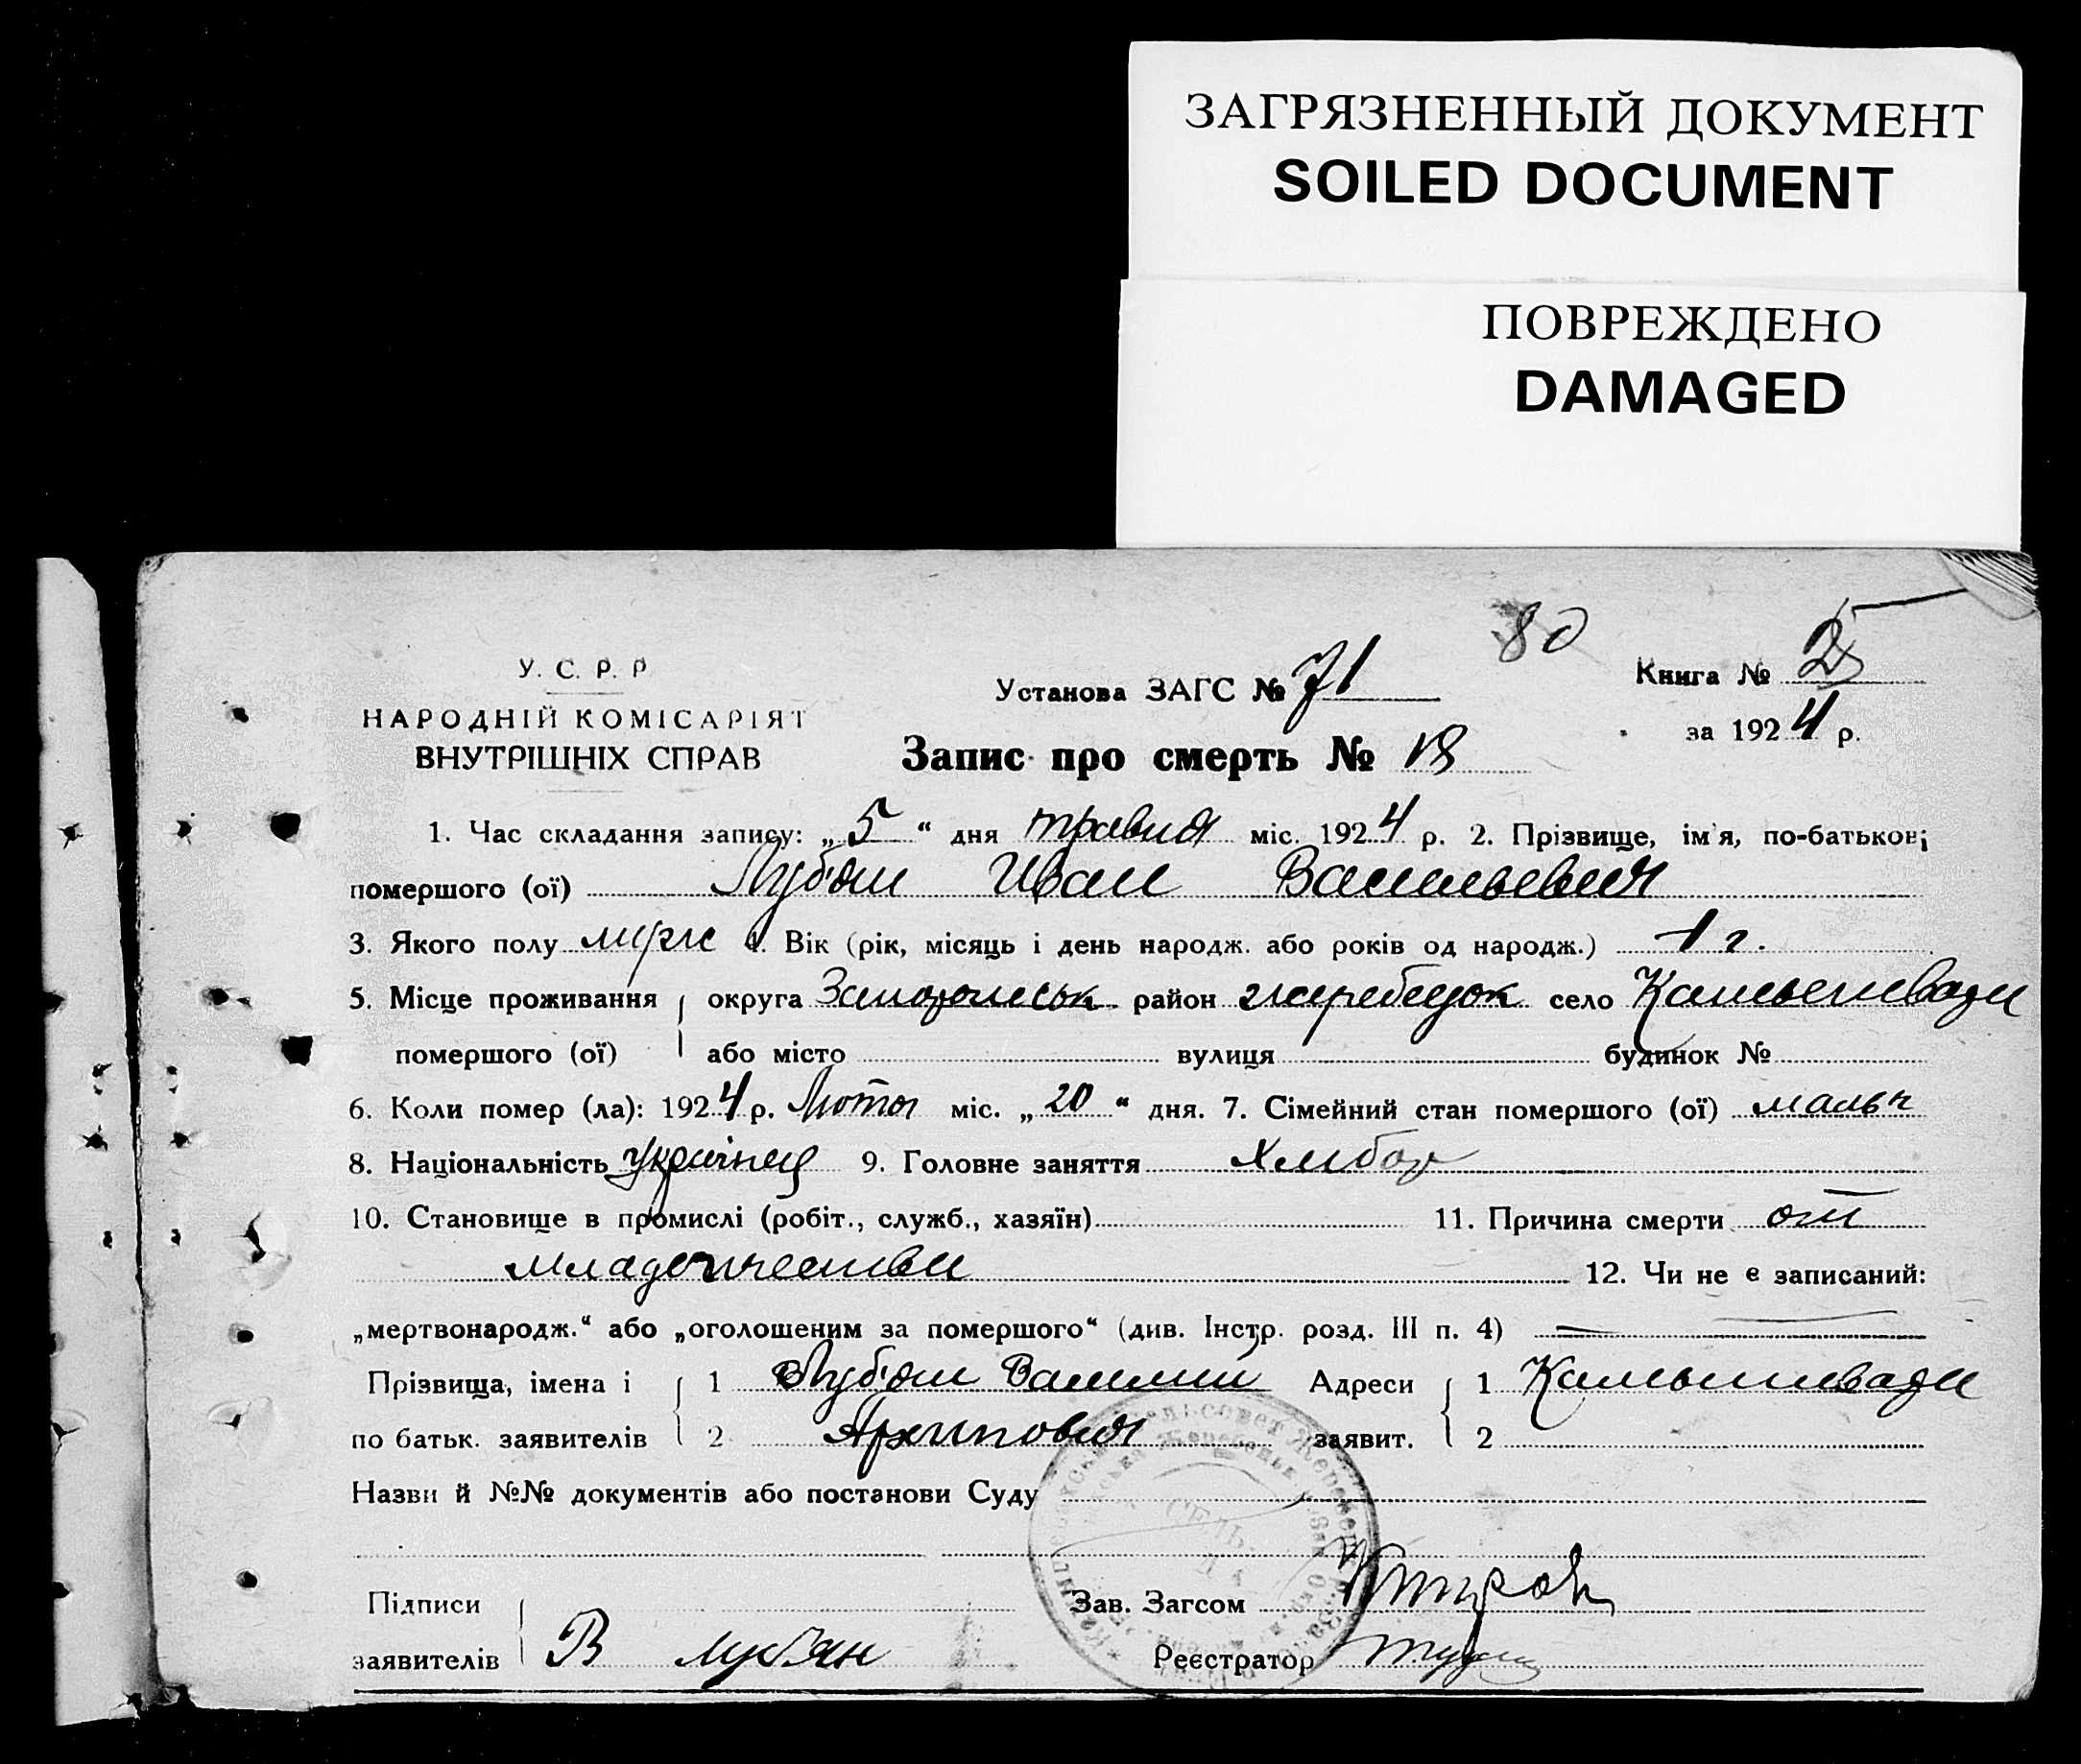 ЗАГРЯЗНЕННЫЙ ДОКУМЕНТ
SOILED DOCUMENT
ПОВРЕЖДЕНО
DAMAGED
80
У. С. Р. Р
Установа ЗАГС № 71
Книга № 25
НАРОДНІЙ КОМІСАРІЯТ
за 1924 р.
ВНУТРІШНІХ СПРАВ
Запис про смерть № 18
1. Час складання запису: „5“ дня травня міс. 1924 р. 2. Прізвище, ім'я, по-батькові
помершого (ої) Лубян Иван Васильевич
3. Якого полу муж 4. Вік (рік, місяць і день народж. або років од народж.) 1 г.
5. Місце проживання округа район село
помершого (ої) або місто вулиця будинок №
6. Коли помер (ла): 1924 р. Лютого міс. „20“ дня. 7. Сімейний стан помершого (ої) мальч
8. Національність українец 9. Головне заняття Хлибор
10. Становище в промислі (робіт., служб., хазяїн) 11. Причина смерти от
младенчества 12. Чи не є записаний:
„мертвонародж.“ або „оголошеним за помершого“ (див. Інстр. розд. III п. 4)
Прізвища, імена і 1 Лубян Василий Адреси 1
по батьк. заявителів 2 Архипович заявит. 2
Назви й №№ документів або постанови Суду
Підписи Зав. Загсом
заявителів В Лубян Реєстратор